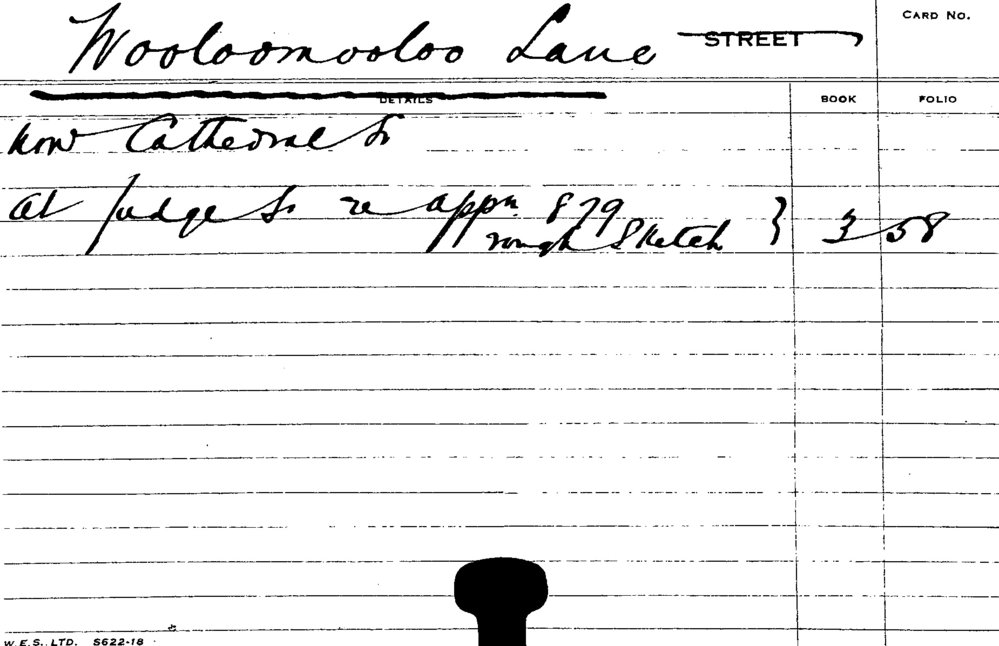 Wooloomooloo Lane STREET
CARD NO.
DETAILS BOOK FOLIO
now Cathedral St
at Judge St re appn. 879
rough Sketch } 3 58
W.E.S. LTD. S622-18